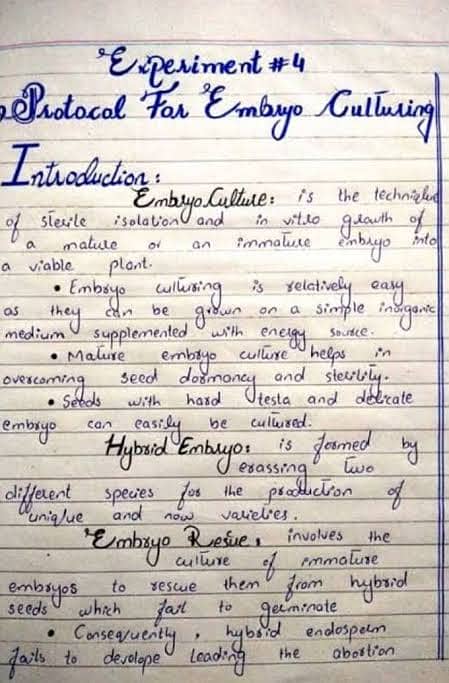 Experiment #4
Protocal For Embryo Culturing
Introduction:
Embryo Culture: is the technique
of sterile isolation and in vitro growth of
a mature or an immature embryo into
a viable plant.
• Embryo culturing is relatively easy
as they can be grown on a simple inorganic
medium supplemented with energy source.
• Mature embryo culture helps in
overcoming seed dormancy and sterility.
• Seeds with hard testa and delicate
embryo can easily be cultured.
Hybrid Embryo: is formed by
erassing two
different species for the production of
unique and now varieties.
Embryo Resue: involves the
culture of immature
embryos to rescue them from hybrid
seeds which fail to germinate
• Consequently, hybrid endosperm
fails to devolope leading the abortion